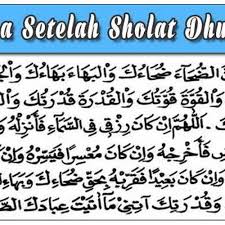 a Setelah Sholat Dhu
الضُّحَآءَ ضُحَاءُكَ وَالْبَهَاءَ بَهَاءُكَ وَالْجَ
وَالْقُوَّةَ قُوَّتُكَ وَالْقُدْرَةَ قُدْرَتُكَ وَال
. اَللّٰهُمَّ إِنْ كَانَ رِزْقِى فِى السَّمَآءِ فَأَنْزِلْهُ وَ
فَأَخْرِجْهُ وَإِنْ كَانَ مُعَسَّرًا فَيَسِّرْهُ وَإِنْ
وَإِنْ كَانَ بَعِيْدًا فَقَرِّبْهُ بِحَقِّ ضُحَاءِكَ وَبَهَاءِ
وَقُدْرَتِكَ آتِنِىْ مَآ أَتَيْتَ عِبَادَكَ الصَّ